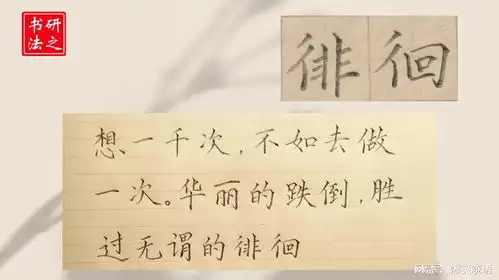 研之
书法
徘徊
想一千次，不如去做
一次。华丽的跌倒，胜
过无谓的徘徊